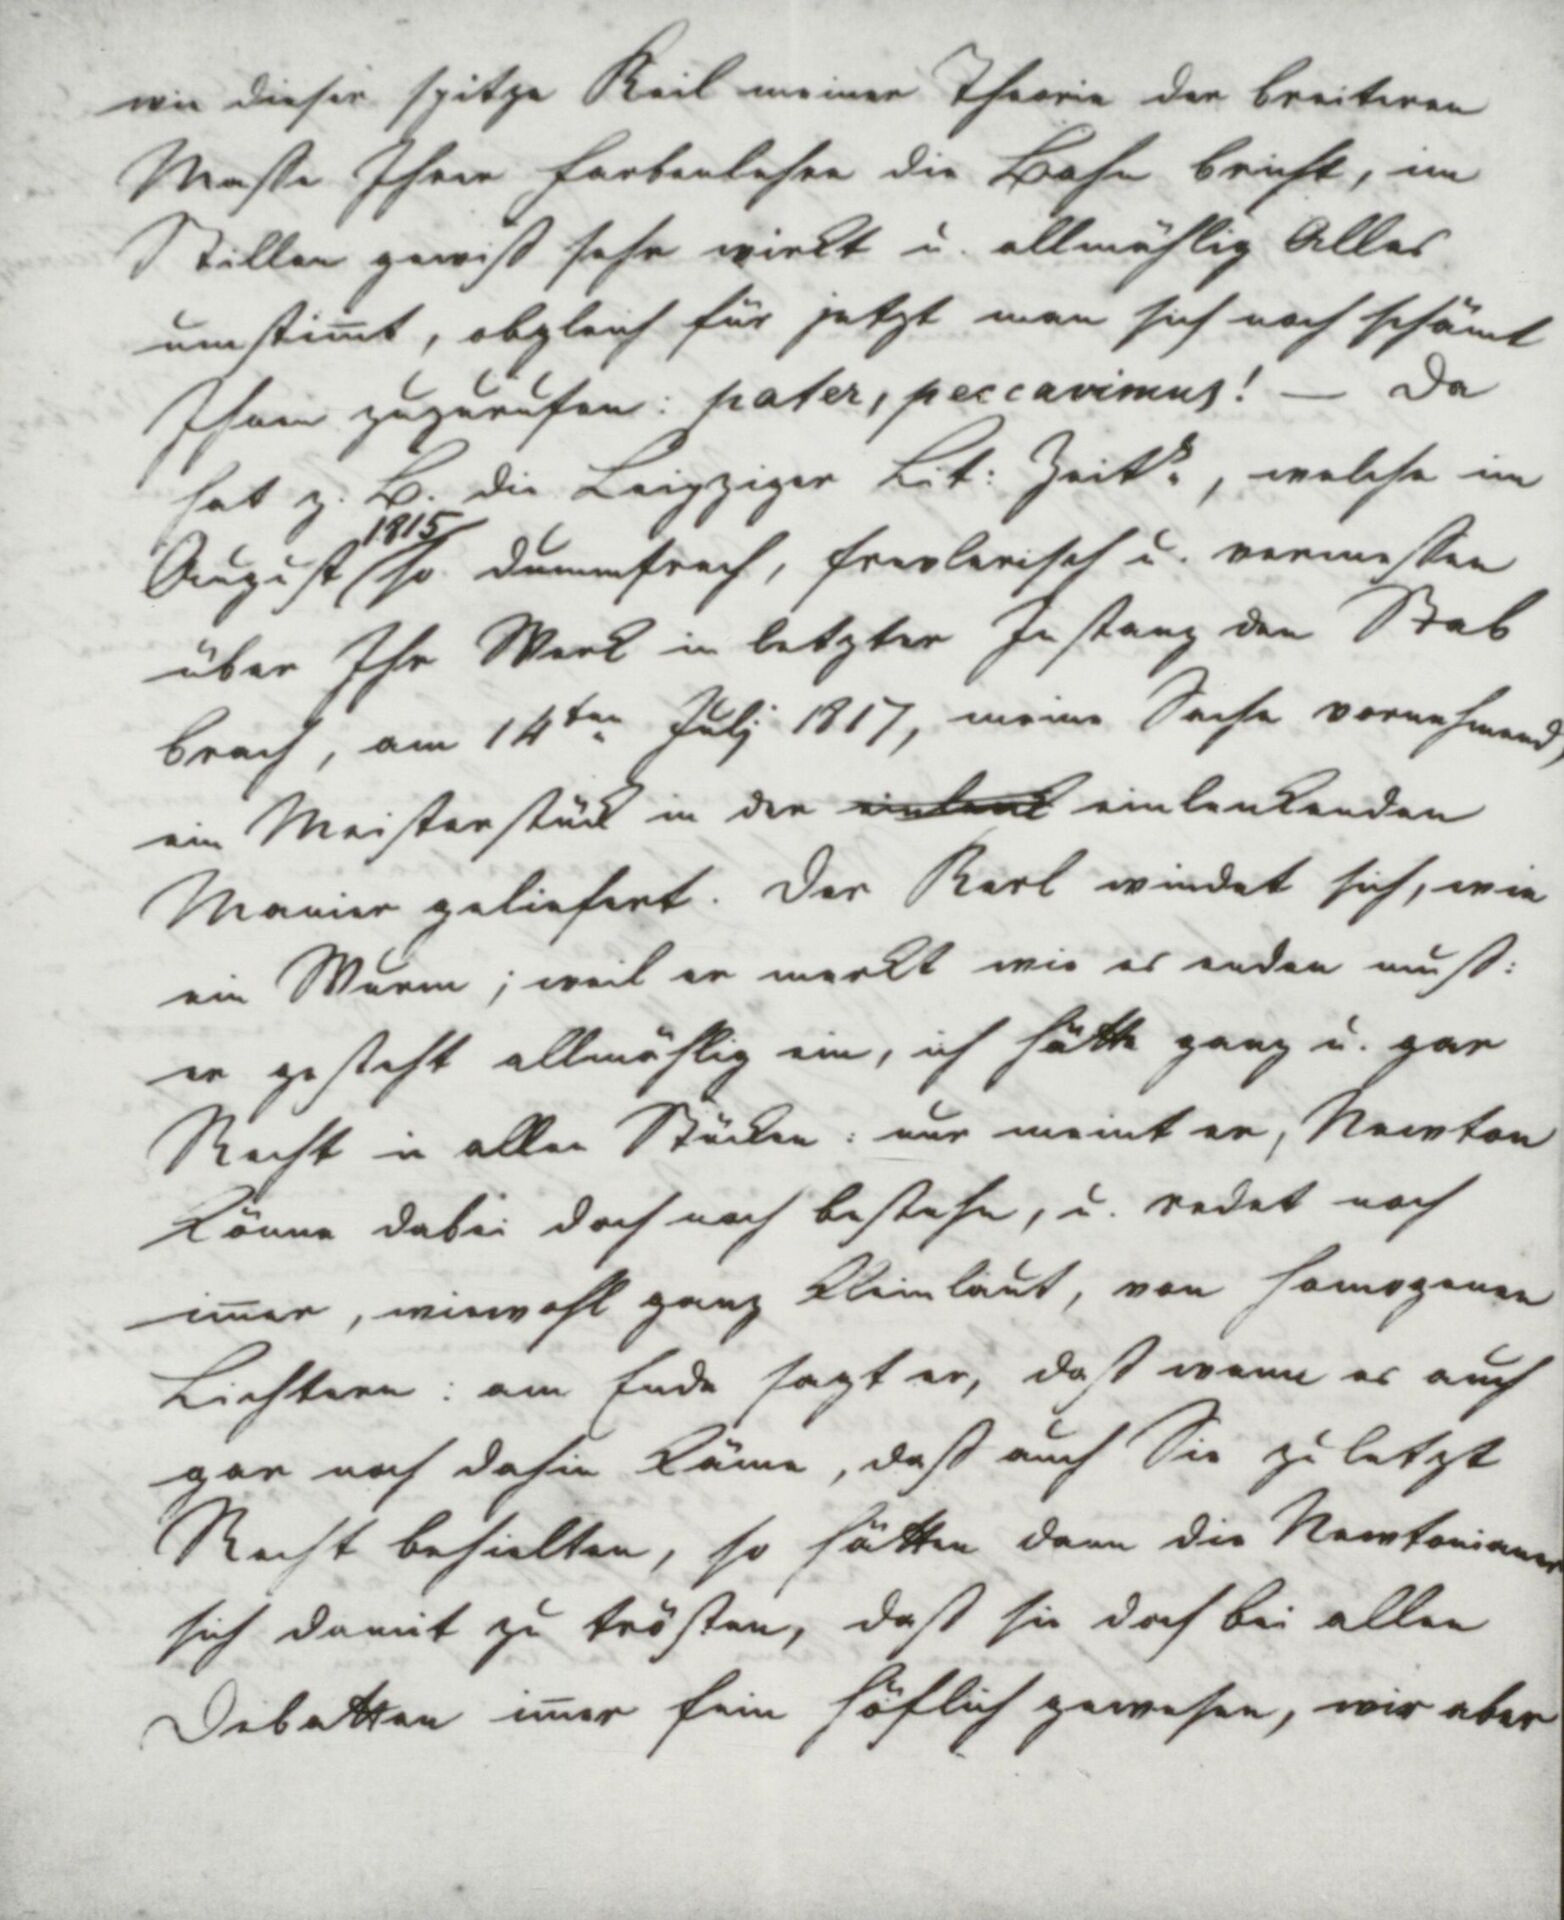 wie dieser spitze Keil meiner Theorie der breiteren
Masse Ihrer Farbenlehre die Bahn bricht, im
Stillen gewiß sehr wirkt u. allmählig Alles
umstim̄t, obgleich für jetzt man sich noch schämt
Ihnen zuzurufen: pater, peccavimus! — Da
hat z. B. die Leipziger Lit: Zeitg., welche im
August 1815 so dummfrech, frevlerisch u. vermessen
über Ihr Werk in letzter Instanz den Stab
brach, am 14ten Julj 1817, meine Sache vornehmend,
ein Meisterstück in der einlenk einlenkenden
Manier geliefert. Der Kerl windet sich, wie
ein Wurm; weil er merkt wie es enden muß:
er gesteht allmählig ein, ich hätte ganz u. gar
Recht in allen Stücken: nur meint er, Newton
könne dabei doch noch bestehn, u. redet noch
im̄er, wiewohl ganz kleinlaut, von homogenen
Lichtern: am Ende sagt er, daß wenn es auch
gar noch dahin käme, daß auch Sie zuletzt
Recht behielten, so hätten dann die Newtonianer
sich damit zu trösten, daß sie doch bei allen
Debatten im̄er fein höflich gewesen, wir aber